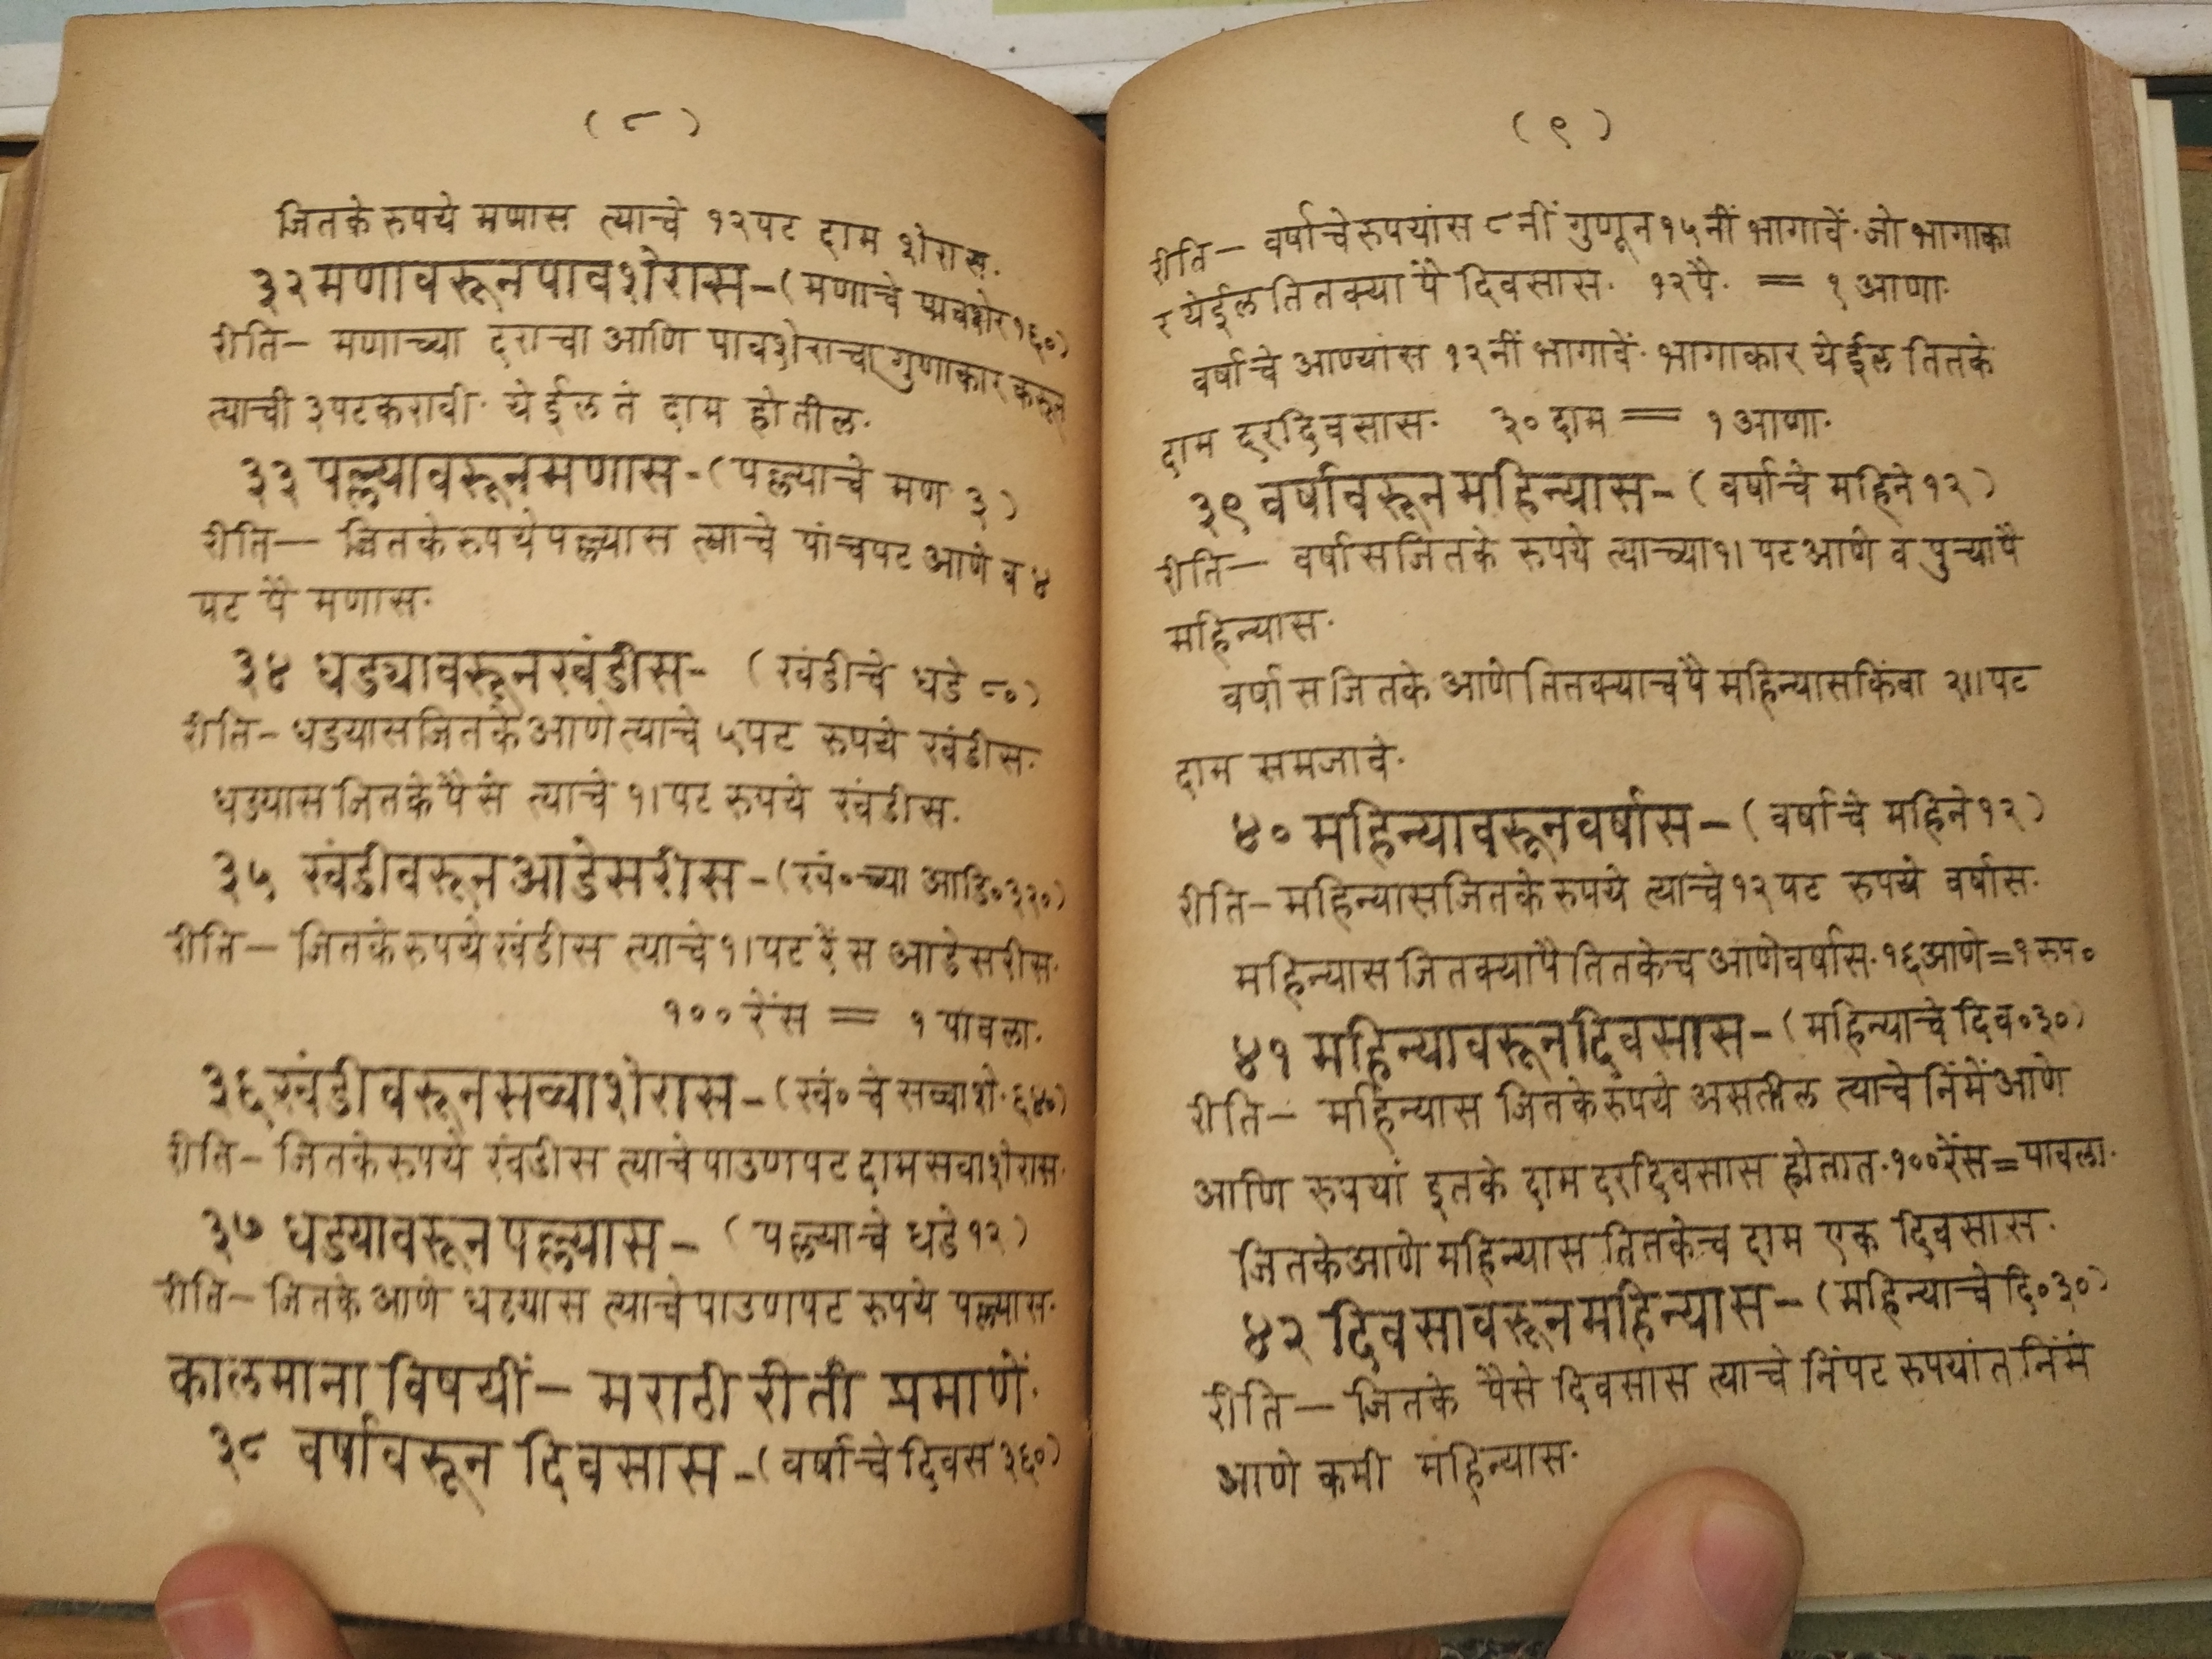 ( ८ )
जितके रुपये मणास त्याचे १२ पट दाम शेरास.
३२ मणावरून पावशेरास - ( मणाचे पावशेर १६० )
रीति - मणाच्या दराचा आणि पावशेराचा गुणाकार करून
त्याची ३ पट करावी. येईल तें दाम होतील.
३३ पल्ल्यावरून मणास - ( पल्ल्याचे मण ३ )
रीति — जितके रुपये पल्ल्यास त्याचे पांचपट आणे व ४
पट पै मणास.
३४ धड्यावरून खंडीस - ( खंडीचे धडे ८० )
रीति - धडयास जितके आणे त्याचे ५ पट रुपये खंडीस.
धडयास जितके पैसे त्याचे १। पट रुपये खंडीस.
३५ खंडीवरून आडेसरीस - ( खं० च्या आडि० ३२० )
रीति - जितके रुपये खंडीस त्याचे १। पट रेंस आडेसरीस.
१०० रेंस = १ पावला.
३६ खंडीवरून सव्वाशेरास - ( खं० चे सव्वाशे. ६४० )
रीति - जितके रुपये खंडीस त्याचे पाउणपट दाम सवाशेरास.
३७ धडयावरून पल्ल्यास - ( पल्ल्याचे धडे १२ )
रीति - जितके आणे धटयास त्याचे पाउणपट रुपये पल्ल्यास.
कालमाना विषयीं - मराठी रीती प्रमाणें.
३८ वर्षावरून दिवसास - ( वर्षाचे दिवस ३६० )
( ९ )
रीति - वर्षाचे रुपयांस ८ नीं गुणून १५ नीं भागावें. जो भागाका
र येईल तितक्या पै दिवसास. १२ पै. = १ आणा.
वर्षाचे आण्यांस १२ नीं भागावें. भागाकार येईल तितके
दाम दरदिवसास. ३० दाम = १ आणा.
३९ वर्षावरून महिन्यास - ( वर्षाचे महिने १२ )
रीति - वर्षास जितके रुपये त्याच्या १। पट आणे व पुऱ्या पै
महिन्यास.
वर्षास जितके आणे तितक्याच पै महिन्यास किंवा २॥ पट
दाम समजावे.
४० महिन्यावरून वर्षास - ( वर्षाचे महिने १२ )
रीति - महिन्यास जितके रुपये त्याचे १२ पट रुपये वर्षास.
महिन्यास जितक्या पै तितकेच आणे वर्षास. १६ आणे = १ रुप०
४१ महिन्यावरून दिवसास - ( महिन्याचे दिव० ३० )
रीति - महिन्यास जितके रुपये असतील त्याचे निंमें आणे
आणि रुपयां इतके दाम दरदिवसास होतात. १०० रेंस = पावला.
जितके आणे महिन्यास तितकेच दाम एक दिवसास.
४२ दिवसावरून महिन्यास - ( महिन्याचे दि० ३० )
रीति - जितके पैसे दिवसास त्याचे निंपट रुपयांत निंमे
आणे कमी महिन्यास.